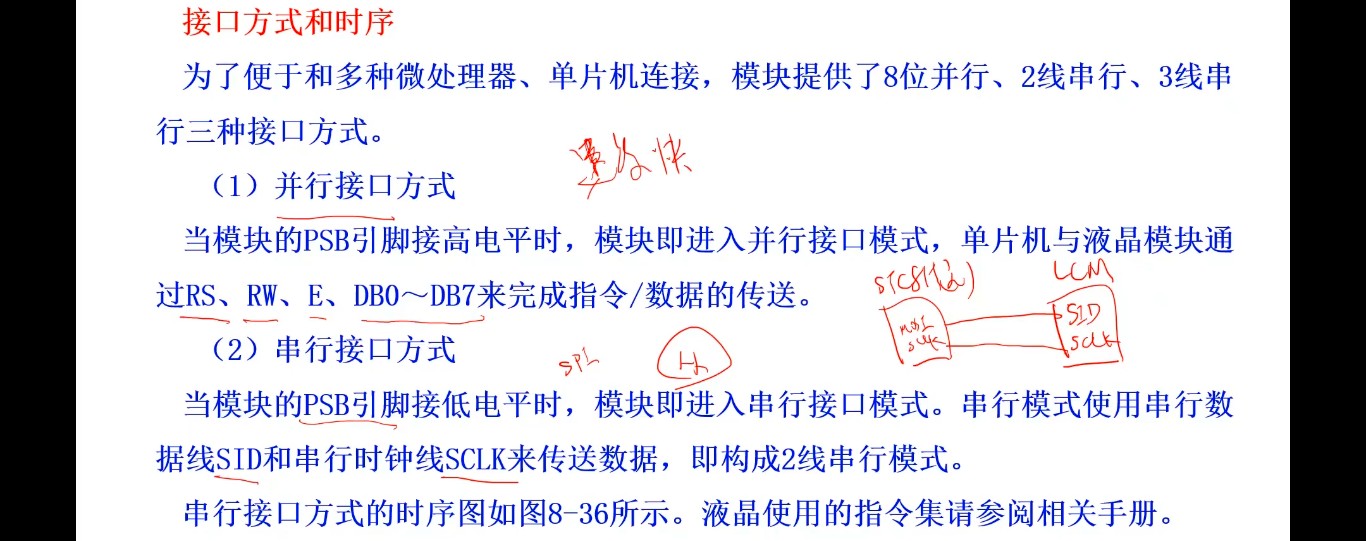 接口方式和时序
为了便于和多种微处理器、单片机连接，模块提供了8位并行、2线串行、3线串
行三种接口方式。
（1）并行接口方式
当模块的PSB引脚接高电平时，模块即进入并行接口模式，单片机与液晶模块通
LCM
过RS、RW、E、DB0～DB7来完成指令/数据的传送。
SID
SCLK
MOSI
SCLK
（2）串行接口方式
SPI
当模块的PSB引脚接低电平时，模块即进入串行接口模式。串行模式使用串行数
据线SID和串行时钟线SCLK来传送数据，即构成2线串行模式。
串行接口方式的时序图如图8-36所示。液晶使用的指令集请参阅相关手册。